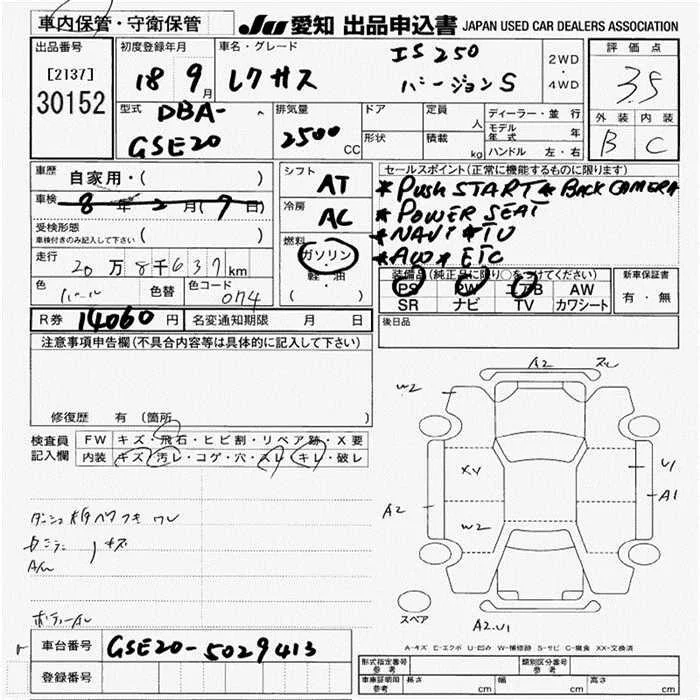 車内保管・守衛保管
JU 愛知 出品申込書 JAPAN USED CAR DEALERS ASSOCIATION
出品番号
[2137]
30152
初度登録年月
18 9月
車名・グレード
レクサス
IS250
バージョンS
2WD
・
4WD
評価点
3.5
外装 内装
B C
型式
DBA-
GSE20
排気量
2500
CC
ドア
形状
定員
人
積載
kg
ディーラー・並行
モデル
年式
年
ハンドル 左・右
車歴 自家用・( )
車検 8年2月(7日)
受検形態
車検付きのみ記入して下さい ( )
走行 20万8千637km
色 パール 色替 色コード 074
シフト AT
冷房 AC
燃料
ガソリン
・
軽・油
( )
セールスポイント(正常に機能するものに限ります)
*PUSH START *BACK CAMERA
*POWER SEAT
*NAVI *TV
*AW * ETC
装備品(純正品に限り○をつけてください)
PS PW エアB AW
SR ナビ TV カワシート
新車保証書
有・無
R券 14060円 名変通知期限 月 日
後日品
注意事項申告欄(不具合内容等は具体的に記入して下さい)
修復歴 有(箇所 )
検査員
記入欄
FW キズ・飛石・ヒビ割・リペア跡・X要
内装 キズ・汚レ・コゲ・穴・スレ・キレ・破レ
A2
W2
XV
W2
A2
U1
A1
A2.U1
スペア
A-キズ E-エクボ U-凹み W-補修跡 S-サビ C-腐食 XX-交換済
車台番号 GSE20-5029413
登録番号
形式指定番号
参考
類別区分番号
参考
車庫証明用
参考
長さ cm 幅 cm 高さ cm